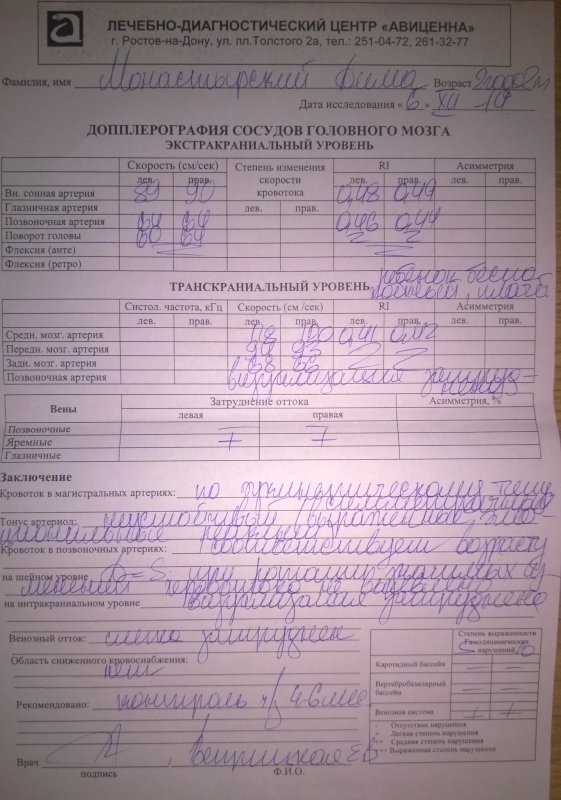 ЛЕЧЕБНО-ДИАГНОСТИЧЕСКИЙ ЦЕНТР «АВИЦЕННА»
г. Ростов-на-Дону, ул. пл.Толстого 2а, тел.: 251-04-72, 261-32-77
Фамилия, имя Монастырский Дима Возраст
Дата исследования «6» XII
ДОППЛЕРОГРАФИЯ СОСУДОВ ГОЛОВНОГО МОЗГА
ЭКСТРАКРАНИАЛЬНЫЙ УРОВЕНЬ
Скорость (см/сек) Степень изменения скорости кровотока RI Асимметрия
лев. прав. лев. прав. лев. прав. лев. прав.
Вн. сонная артерия 89 90 0,48 0,49
Глазничная артерия
Позвоночная артерия 64 64 0,46 0,44
Поворот головы 60 64
Флексия (анте)
Флексия (ретро)
ребенок беспо-
ТРАНСКРАНИАЛЬНЫЙ УРОВЕНЬ койный, плачет
Систол. частота, кГц Скорость (см /сек) RI Асимметрия
лев. прав. лев. прав. лев. прав. лев. прав.
Средн. мозг. артерия 0,41
Передн. мозг. артерия
Задн. мозг. артерия
Позвоночная артерия визуализация затруд-
нена
Вены Затруднение оттока Асимметрия, %
левая правая
Позвоночные
Яремные + +
Глазничные
Заключение
Кровоток в магистральных артериях: по типу
симметричный
Тонус артериол: неустойчивый, выраженная эмо-
циональные реакции
Кровоток в позвоночных артериях: соответствует возрасту
на шейном уровне D=S при ротации значимых из-
менений кровотока не выявлено
на интракраниальном уровне визуализация затруднена
Венозный отток: слегка затруднен
Область сниженного кровоснабжения:
нет
Рекомендовано: контроль ч/з 4-6 мес
Степень выраженности гемодинамических нарушений
S D
Каротидный бассейн — —
Вертебробазилярный бассейн — —
Венозная система + +
- Отсутствие нарушения
+ Легкая степень нарушения
++ Средняя степень нарушения
+++ Выраженная степень нарушения
Врач
подпись Ф.И.О.